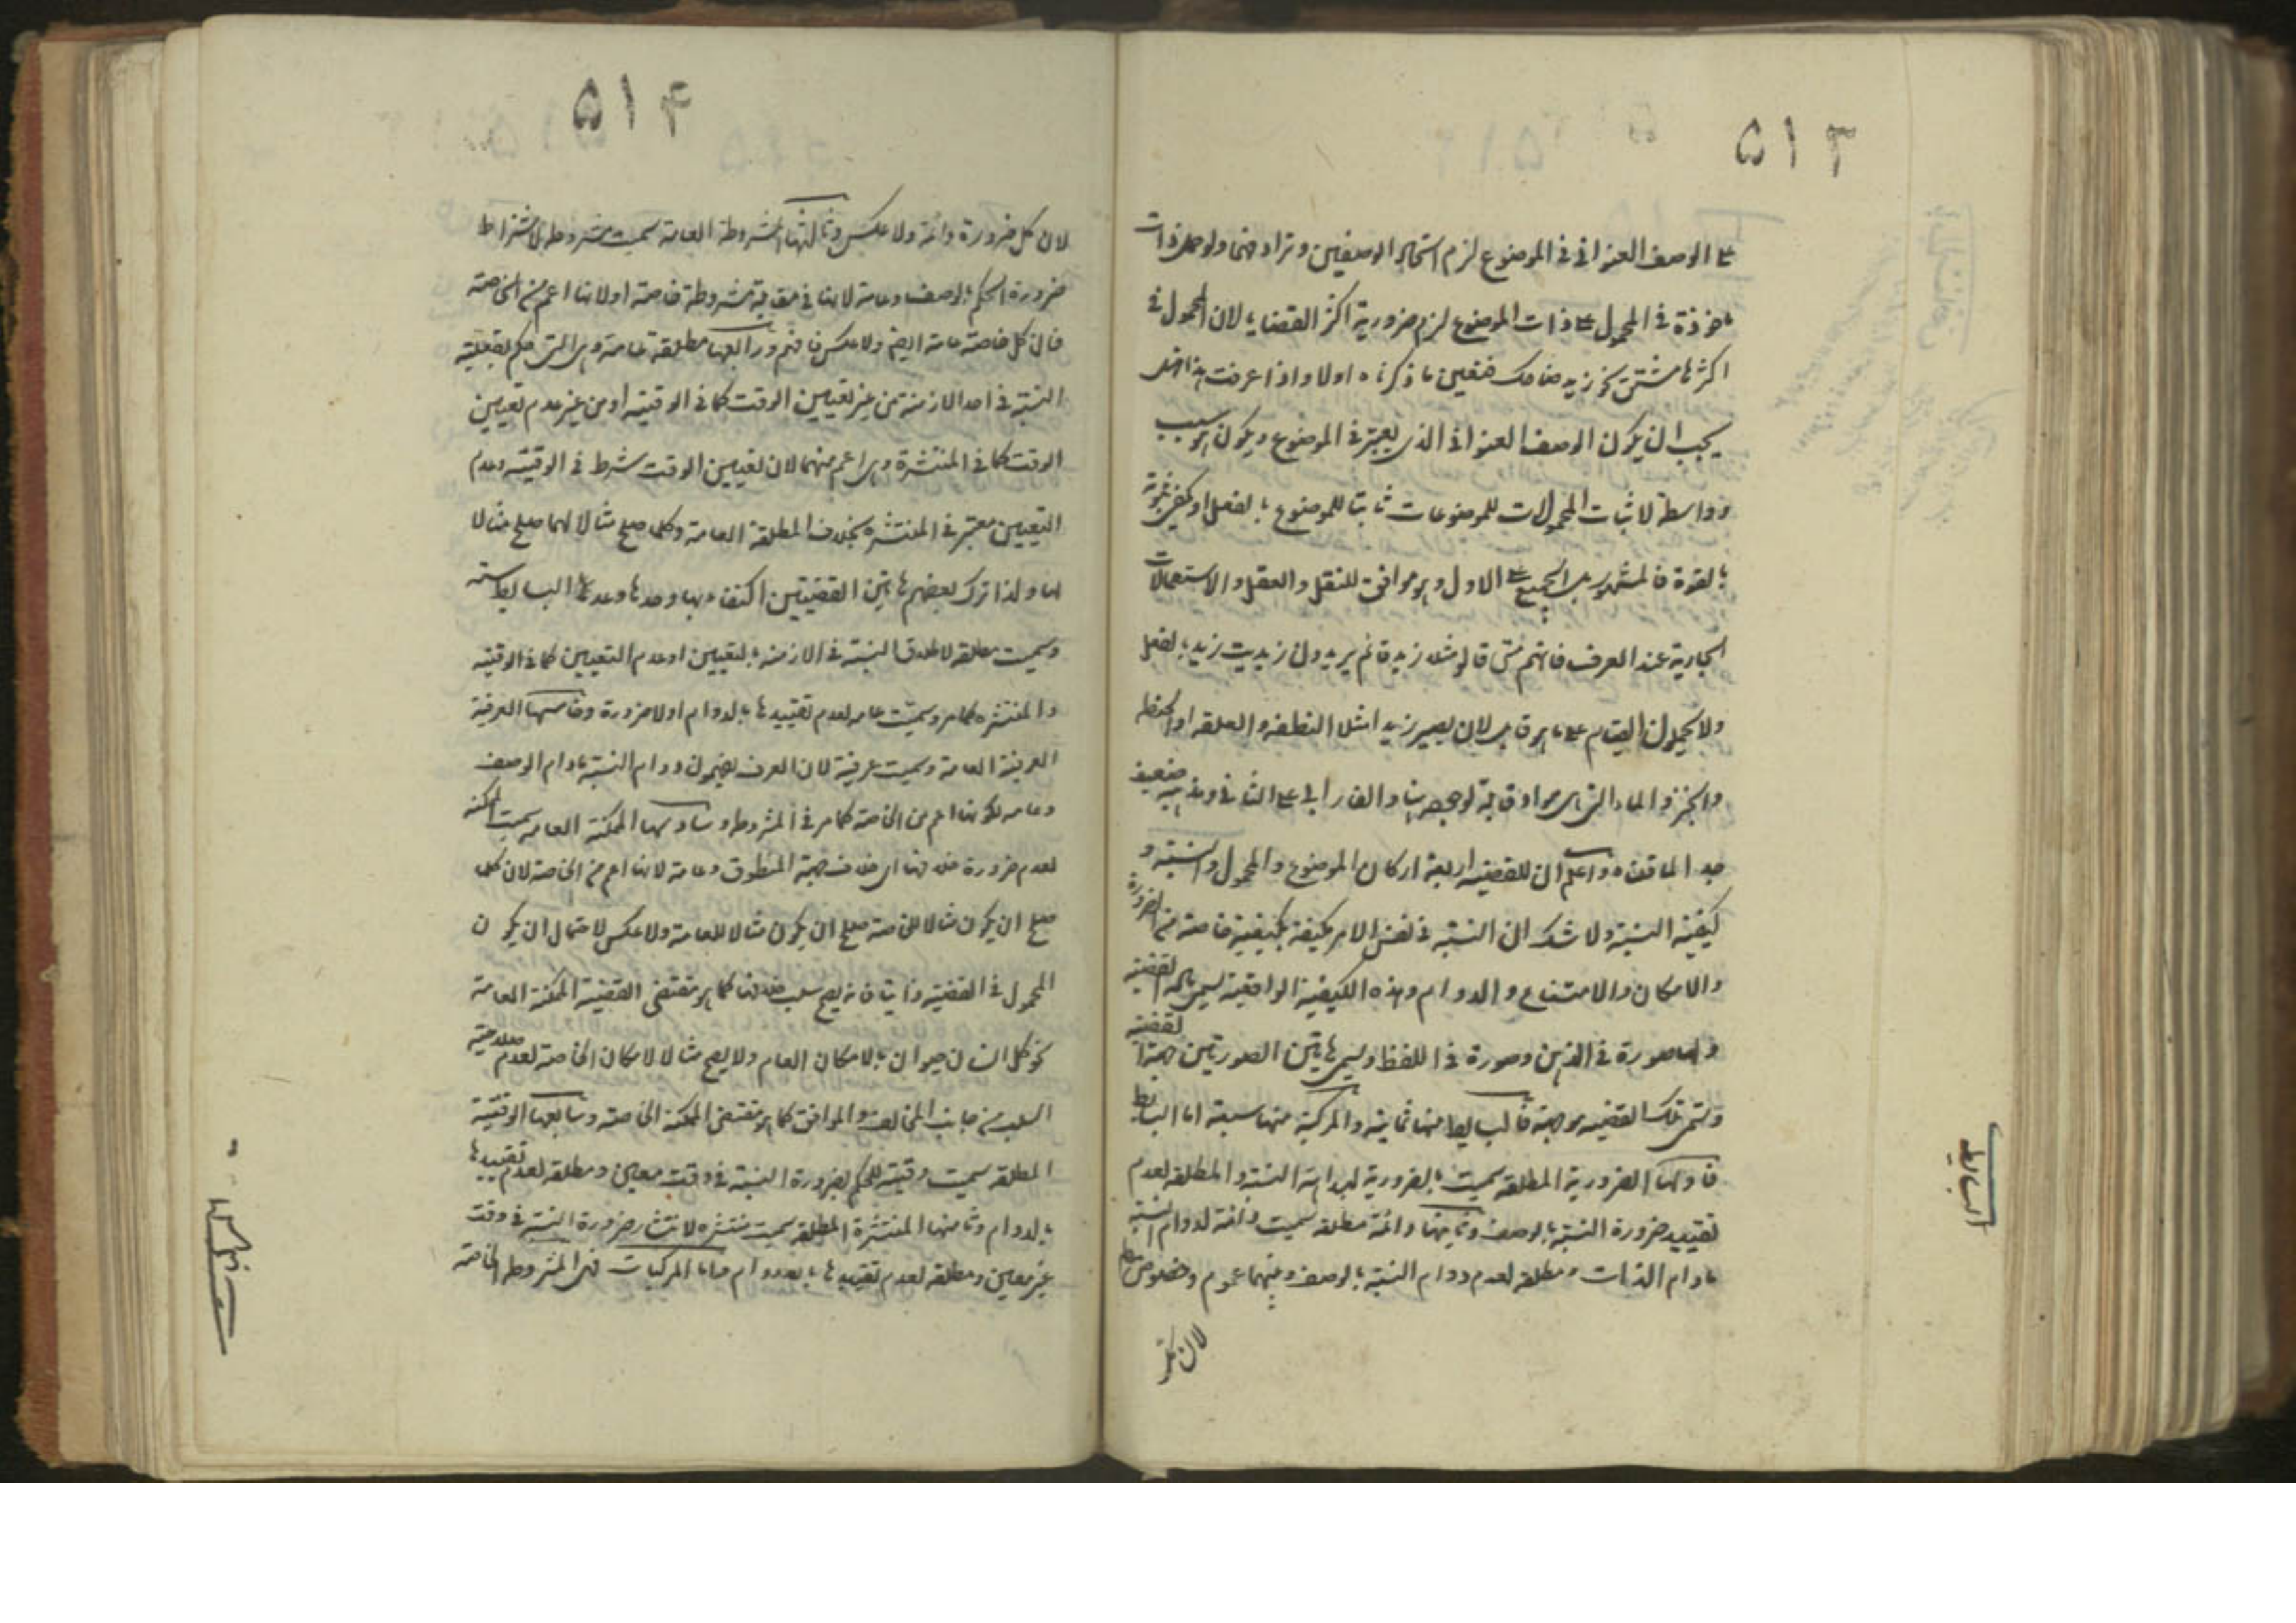 ٥١٣
على الوصف العنواني في الموضوع لزم اتحاد الوصفين وترادفهما ولو حمل ذات
ماخوذة في المحمول على ذات الموضوع لزم ضرورية اكثر القضايا لان المحمول في
اكثرها مشتق نحو زيد ضاحك فتعين ما ذكرناه اولا واذا عرفت هذا فهل
يجب ان يكون الوصف العنواني الذي يعتبر في الموضوع ويكون هو سبب
وواسطة لاثبات المحمولات للموضوعات ثابتا للموضوع بالفعل او يكفي ثبوته
بالقوة فالمشهور بل الجميع على الاول وهو موافق للنقل والعقل والاستعمالات
الجارية عند العرف فانهم متى قالوا مثلا زيد قائم يريدون زيديت زيد بالفعل
ولا يحملون القيام على ما هو قابل لان يصير زيدا مثلا النطفه والعلقه او الحنطه
والخبز والماء التي هي مواد قابلة لوجود بناء والفارابي على الثاني ومذهبه ضعيف
جدا لما قلناه واعلم ان للقضيه اربعة اركان الموضوع والمحمول والنسبة و
كيفية النسبة ولا شك ان النسبة في نفس الامر مكيفة بكيفية خاصة من الضرورة
والامكان والامتناع والدوام وهذه الكيفية الواقعية تسمى مادة القضية
ولها صورة في الذهن وصورة في اللفظ ويسمى هاتين الصورتين جهة القضية
وتسمى تلك القضيه موجهة فالبسايط منها ثمانية والمركبة منها سبعة اما البسايط
فاولها الضرورية المطلقه سميت بالضرورية لضرورة النسبة والمطلقه لعدم
تقييد ضرورة النسبة بالوصف وثانيها دائمة مطلقه سميت دائمة لدوام النسبة
مادام الذات ومطلقه لعدم دوام النسبة بالوصف وبينهما عموم وخصوص مطلق
لان كل
البسايط
٥١٤
لان كل ضرورة دائمة ولا عكس وثالثها المشروطة العامة سميت مشروطه لاشتراط
ضرورة الحكم بالوصف وعامة لانها في مقابلة مشروطة خاصة او لانها اعم من الخاصة
فان كل خاصة عامة ايضا ولا عكس فافهم ورابعها مطلقة عامة وهي التي حكم بفعلية
النسبة في احد الازمنة من غير تعيين الوقت كما في الوقتيه او من غير عدم تعيين
الوقت كما في المنتشرة وهي اعم منهما لان تعيين الوقت شرط في الوقتيه وعدم
التعيين معتبر في المنتشره بخلاف المطلقة العامة وكلما صلح مثالا لهما صلح مثالا
لها ولذا ترك بعضهم هاتين القضيتين اكتفاء بها وحدها وعد البسايط ستة
وسميت مطلقه لاطلاق النسبة في الازمنه بالتعيين او عدم التعيين كما في الوقتيه
والمنتشره كما مر وسميت عامه لعدم تقييدها بالدوام او لا ضرورة وخامسها العرفية
العرفية العامة وسميت عرفية لان العرف يفهمون دوام النسبة مادام الوصف
وعامه لكونها اعم من الخاصة كما مر في المشروطه وسادسها الممكنة العامه سميت ممكنه
لعدم ضرورة خلافها اي خلاف جهة المنطوق وعامة لانها اعم من الخاصة لان كلما
صلح ان يكون مثالا للخاصة صلح ان يكون مثالا للعامة ولا عكس لاحتمال ان يكون
المحمول في القضية ذاتيا فانه يصح سلب خلافها كما هو مقتضى القضية الممكنة العامة
نحو كل انسان حيوان بالامكان العام ولا يصح مثالا للامكان الخاصة لعدم صلاحية
السلب من جانب المخالف والموافق كما هو مقتضى الممكنة الخاصة وسابعها الوقتية
المطلقه سميت وقتيه للحكم بضرورة النسبة في وقت معين ومطلقه لعدم تقييدها
بالدوام وثامنها المنتشرة المطلقه سميت منتشره لانتشار ضرورة النسبة في وقت
غير معين ومطلقه لعدم تقييدها باللادوام واما المركبات فهي المشروطه الخاصة